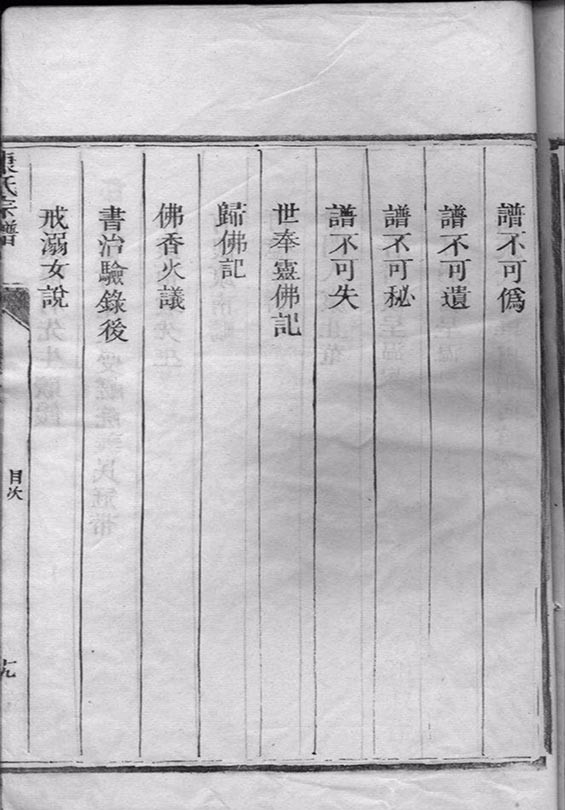 譜不可僞
譜不可遺
譜不可秘
譜不可失
世奉靈佛記
歸佛記
佛香火議
書治驗錄後
戒溺女說
康氏宗譜
目次
九